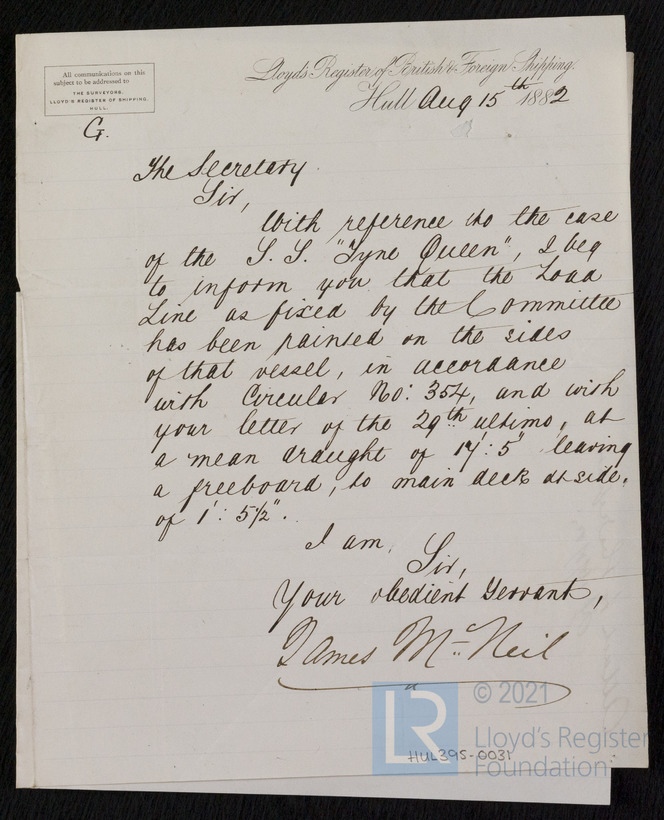 All communications on this
subject to be addressed to
THE SURVEYORS,
LLOYD'S REGISTER OF SHIPPING.
HULL.
G.
Lloyd's Register of British & Foreign Shipping.
Hull Aug 15th 1882
The Secretary
Sir,
With reference to the case
of the S. S. "Tyne Queen", I beg
to inform you that the Load
Line as fixed by the Committee
has been painted on the sides
of that vessel, in accordance
with Circular No: 354, and with
your letter of the 29th ultimo, at
a mean draught of 17': 5" leaving
a freeboard, to main deck at side,
of 1': 5½".
I am, Sir,
Your obedient Servant,
James McNeil
LR © 2021
Lloyd's Register
Foundation
HUL395-0031